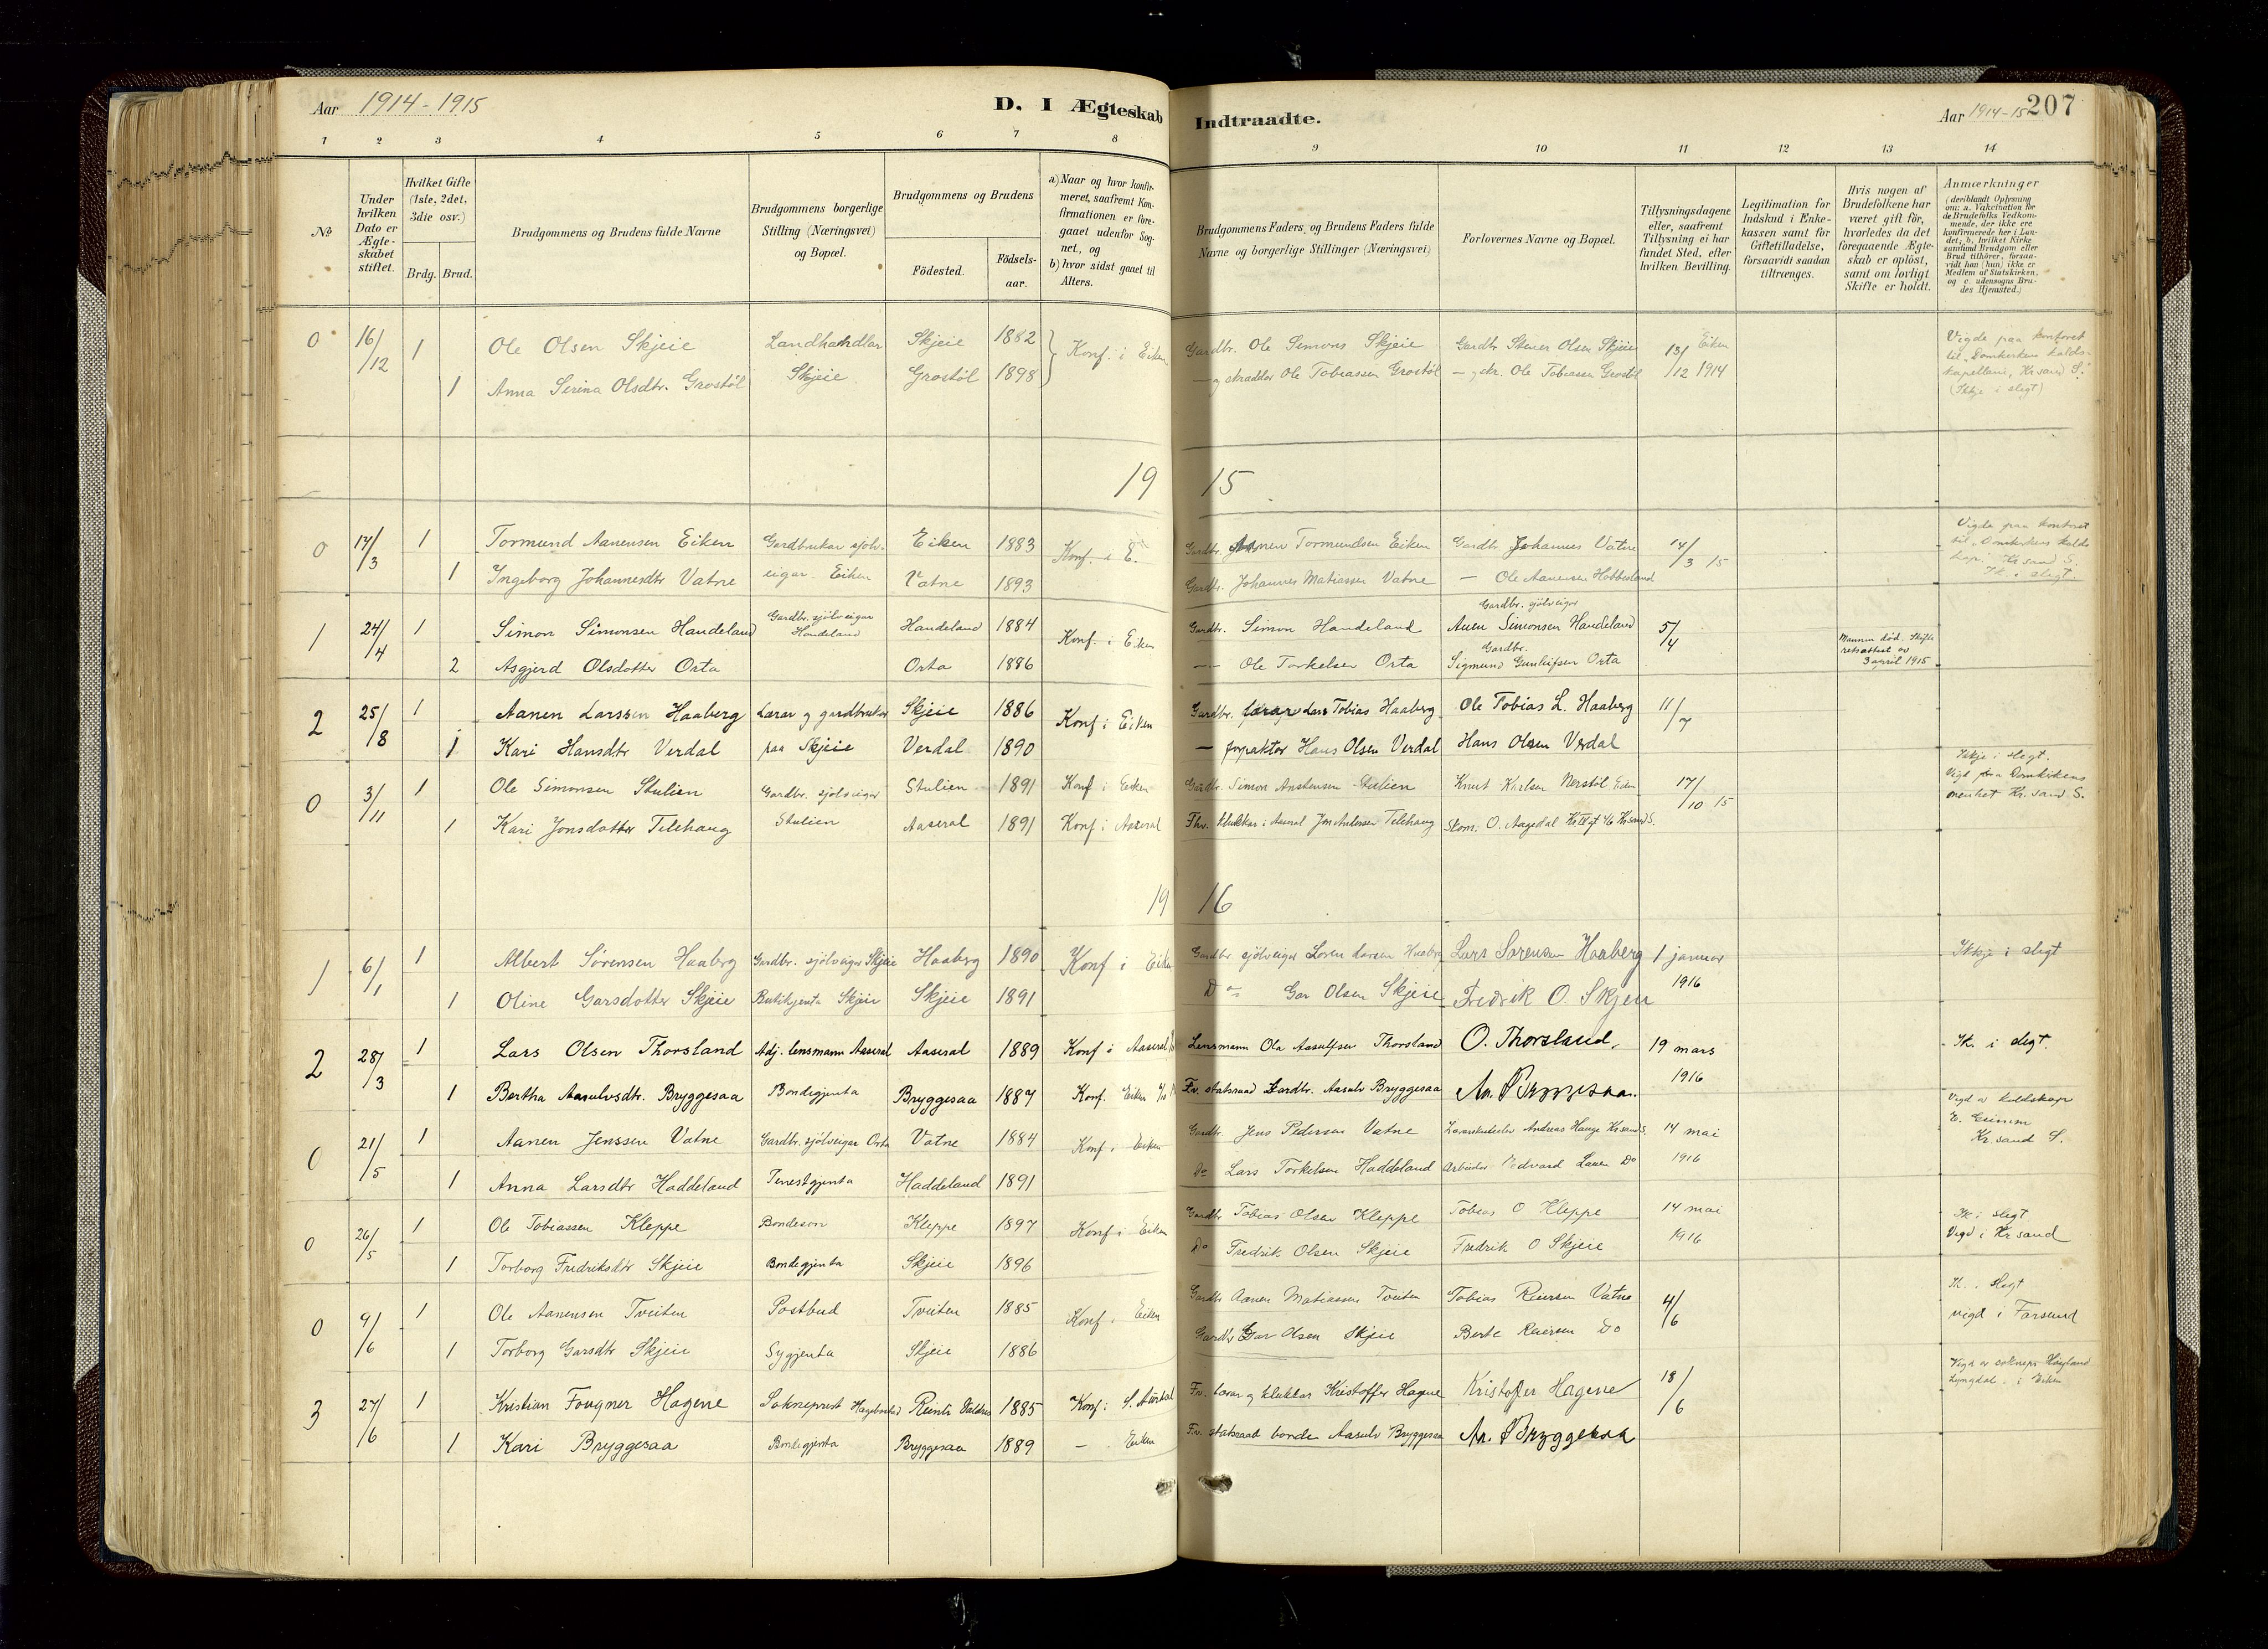 Aar 1914-1915
D. I Ægteskab
Indtraadte.
Aar 1914-15 207
1 2 3 4 5 6 7 8 9 10 11 12 13 14
№
Under hvilken Dato er Ægteskabet stiftet.
Hvilket Gifte (1ste, 2det, 3die osv.)
Brdg. Brud.
Brudgommens og Brudens fulde Navne
Brudgommens borgerlige Stilling (Næringsvei) og Bopæl.
Brudgommens og Brudens
Födested.
Födsels-aar.
a) Naar og hvor konfirmeret, saafremt Konfirmationen er foregaaet udenfor Sognet, og
b) hvor sidst gaaet til Alters.
Brudgommens Faders, og Brudens Faders fulde Navne og borgerlige Stillinger (Næringsvei)
Forlovernes Navne og Bopæl.
Tillysningsdagene eller, saafremt Tillysning ei har fundet Sted, efter hvilken Bevilling.
Legitimation for Indskud i Enkekassen samt for Giftetilladelse, forsaavidt saadan tiltrænges.
Hvis nogen af Brudefolkene har været gift för, hvorledes da det foregaaende Ægteskab er oplöst, samt om lovligt Skifte er holdt.
Anmærkninger (deriblandt Oplysning om: a. Vakcination for de Brudefolks Vedkommende, der ikke ere konfirmerede her i Landet; b, hvilket Kirkesamfund Brudgom eller Brud tilhörer, forsaavidt han (hun) ikke er Medlem af Statskirken, og c. udensogns Brudes Hjemsted.)
0 16/12 1 Ole Olsen Skjeie Landhandlar Skjeie 1882 Konf. i Eiken Gardbr. Ole Simons Skjeie Gardbr Stener Olsen Skjeie 13/12 1914 Eiken Vigde paa kontoret til "Domkirkens kaldskapellani, Kr.sand S." (Ikkje i slegt)
1 Anna Serina Olsdtr. Grostöl Skjeie Grostöl 1898 — og skraddar Ole Tobiassen Grostöl — skr. Ole Tobiassen Grostöl
19 15
0 17/3 1 Tormund Aanensen Eiken Gardbrukar sjölv- Eiken 1883 Konf. i E. Gardbr. Aanen Tormundsen Eiken Gardbr. Johannes Vatne 14/3 15 Vigde paa kontoret til Domkirkens kaldskap. Kr.sand S. Ik. i slegt.
1 Ingeborg Johannesdtr Vatne eigar. Eiken Vatne 1893 Gardbr. Johannes Matiassen Vatne — Ole Aanensen Hobbesland
1 24/4 1 Simon Simonsen Haudeland Gardbr. sjölveigar Haudeland Haudeland 1884 Konf. i Eiken Gardbr. Simon Haudeland Gardbr. sjölveigar Anen Simonsen Haudeland 5/4 Mannen död. Skifteretsattest av 3 april 1915
2 Asgjerd Olsdotter Orta Orta 1886 — Ole Torkelsen Orta Gardbr. Sigmund Gunleifsen Orta
2 25/8 1 Aanen Larssen Haaberg Lærar og gardbrukar Skjeie 1886 Konf i Eiken Gardbr. lærar Lars Tobias Haaberg Ole Tobias L. Haaberg 11/7
1 Kari Hansdtr Verdal paa Skjeie Verdal 1890 — forpaktar Hans Olsen Verdal Hans Olsen Verdal
0 3/11 1 Ole Simonsen Stulien Gardbr. sjölveigar Stulien 1891 Konf i Eiken Gardbr. Simon Anstensen Stulien Knut Karlsen Nerstöl Eiken 17/10 15 Ikkje i slegt. Vigd paa Domkirkens menhet Kr.sand S.
1 Kari Jonsdotter Telehaug Stulien Aaseral 1891 Konf i Aaseral Fhv. klukkar i Aaseral Jon Andersen Telehaug Skom. O. Aagedal Kr IV gt 46 Kr.sand S.
19 16
1 6/1 1 Albert Sörensen Haaberg Gardbr. sjölveigar Skjeie Haaberg 1890 Konf i Eiken Gardbr sjölveigar Sören Larsen Haaberg Lars Sörensen Haaberg 1 januar 1916 Ikkje i slegt
1 Oline Garsdotter Skjeie Butikjenta Skjeie Skjeie 1891 Do Gar Olsen Skjeie Fredrik O. Skjeie
2 28/3 1 Lars Olsen Thorsland Adj. lensmann Aaseral Aaseral 1889 Konf i Aaseral Lensmann Ola Aasulfsen Thorsland O. Thorsland. 19 mars 1916 Ik. i slegt.
1 Bertha Aasulvsdtr. Bryggesaa Bondegjenta Bryggesaa 1887 Konf. Eiken Fv. statsraad Gardbr. Aasulv Bryggesaa Aa. Bryggesaa.
0 21/5 1 Aanen Jenssen Vatne Gardbr. sjölveigar Orta Vatne 1884 Konf. i Eiken Gardbr. Jens Pedersen Vatne Andreas Hauge Kr.sand S. 14 mai 1916 Vigd av kaldskap E. Grimm Kr.sand S.
1 Anna Larsdtr Haddeland Tenestgjenta Haddeland 1891 Do Lars Torkelsen Haddeland Arbeider Edvard Do
0 26/5 1 Ole Tobiassen Kleppe Bondeson Kleppe 1897 Konf i Eiken Gardbr Tobias Olsen Kleppe Tobias O Kleppe 14 mai 1916 Ik i slegt Vigd i Kr.sand
1 Torborg Fredriksdtr Skjeie Bondegjenta Skjeie 1896 Do Fredrik Olsen Skjeie Fredrik O Skjeie
0 9/6 1 Ole Aanensen Tveiten Postbud Tveiten 1885 Konf. i Eiken Gardbr Aanen Matiassen Tveiten Tobias Reiersen Vatne 4/6 Ik. i slegt vigd i Farsund
1 Torborg Garsdtr Skjeie Sygjenta Skjeie 1886 Gardbr Gar Olsen Skjeie Berte Reiersen Do
3 27/6 1 Kristian Fougner Hagene Sokneprest Hægebostad Valdres 1885 Konf i S. Aurdal Fv. lærar og klukkar Kristoffer Hagene Kristoffer Hagene 18/6 Vigd av soknepr. Haugland Lyngdal i Eiken
1 Kari Bryggesaa Bondegjenta Bryggesaa 1889 — Eiken Fv. statsraad bonde Aasulv Bryggesaa Aa. Bryggesaa